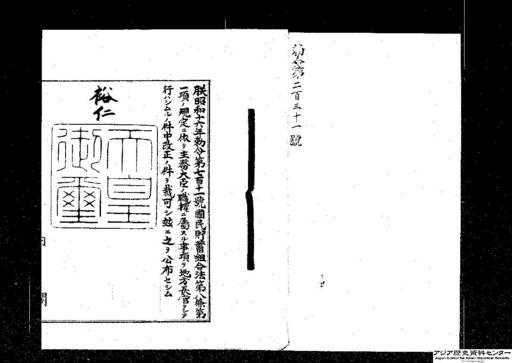 勅令第二百三十一號
朕昭和十六年勅令第七百十一號國民貯蓄組合法第八條第
一項ノ規定ニ依リ主務大臣ノ職權ニ屬スル事項ヲ地方長官ヲシテ
行ハシムルノ件中改正ノ件ヲ裁可シ玆ニ之ヲ公布セシム
裕仁
天皇
御璽
内閣
アジア歴史資料センター
Japan Center for Asian Historical Records